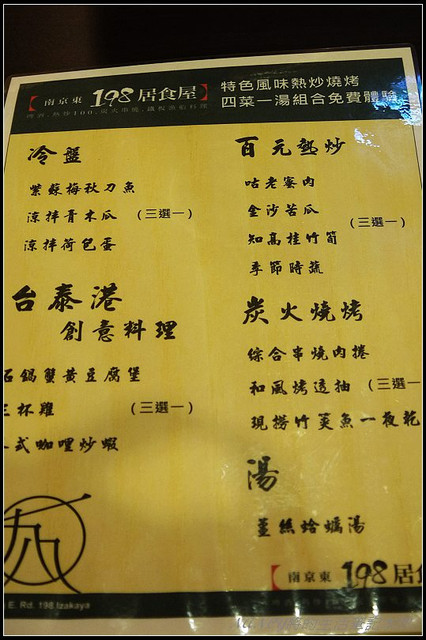 【南京東 198 居食屋】
特色風味熱炒燒烤
四菜一湯組合免費體驗
冷盤
紫蘇梅秋刀魚
涼拌青木瓜
(三選一)
涼拌荷包蛋
百元熱炒
咕老蜜肉
金沙苦瓜
(三選一)
知高桂竹筍
季節時蔬
台泰港
創意料理
石鍋蟹黃豆腐堡
三杯雞
(三選一)
式咖哩炒蝦
炭火燒烤
綜合串燒肉捲
和風烤透抽
(三選一
現撈竹筴魚一夜乾
湯
薑絲蛤蠣湯
【南京東 198 居
E. Rd. 198 Izakaya